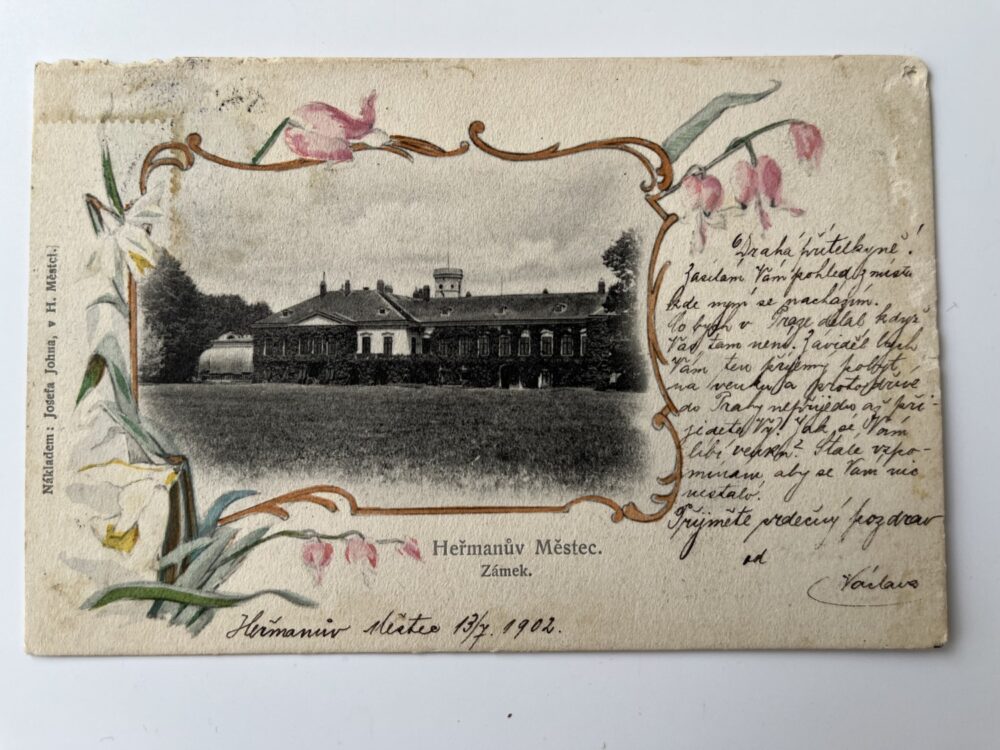 Drahá přítelkyně!
Zasílám Vám pohled z místa
kde nyní se nacházím.
Co bych v Praze dělal když
Vás tam není. Záviděl bych
Vám ten příjemný pobyt
na venku a proto dříve
do Prahy nepřijedu až při-
jedete Vy! Jak se Vám
líbí venku? Stále vzpo-
mínám, aby se Vám nic
nestalo.
Přijměte srdečný pozdrav
od
Václava
Nákladem: Josefa Johna, v H. Městci.
Heřmanův Městec.
Zámek.
Heřmanův Městec 13/7. 1902.